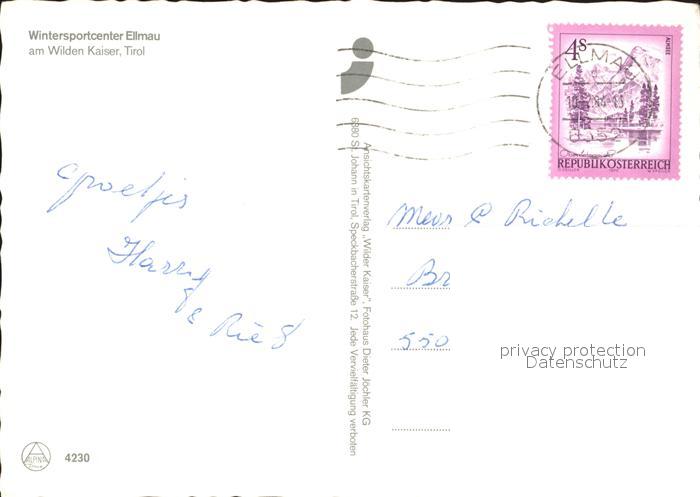 Wintersportcenter Ellmau
am Wilden Kaiser, Tirol
4s
ALMSEE
ELLMAU
6352
REPUBLIK ÖSTERREICH
groetjes
Harry
&
Mevr
Richelle
Br
550
privacy protection
Datenschutz
Ansichtskartenverlag „Wilder Kaiser", Fotohaus Dieter Jöchler KG
6380 St. Johann in Tirol, Speckbacherstraße 12. Jede Vervielfältigung verboten
ALPINA
4230